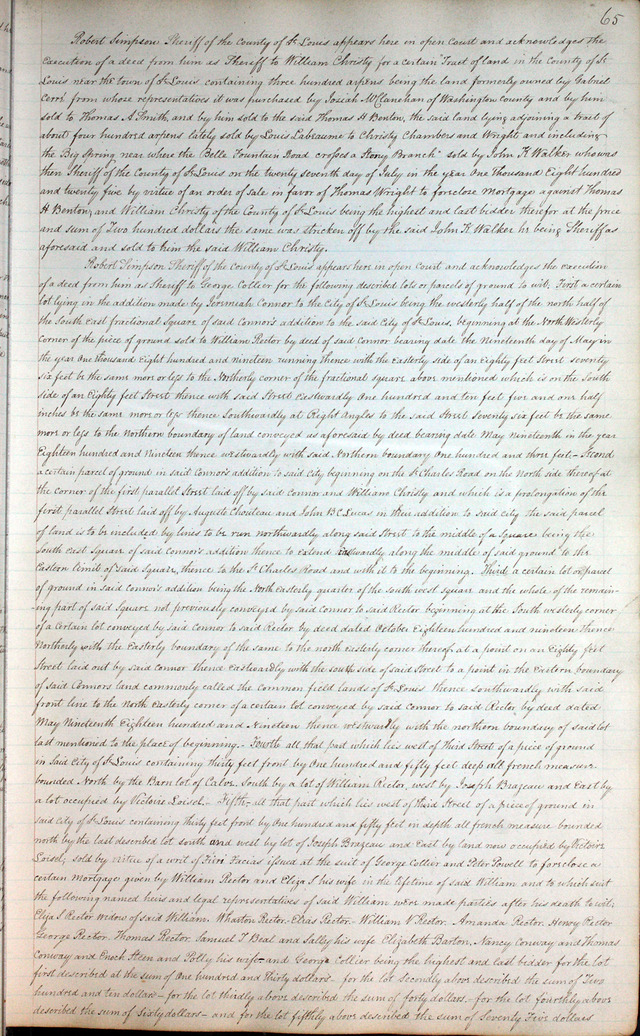 65
Robert Simpson Sheriff of the County of St Louis appears here in open Court and acknowledges the
execution of a deed from him as Sheriff to William Christy for a certain Tract of land in the County of St
Louis near the town of St Louis containing three hundred arpens being the land formerly owned by Gabriel
Cerre from whose representatives it was purchased by Josiah McClanehan of Washington county and by him
sold to Thomas A Smith, and by him sold to the said Thomas H Benton, the said land lying adjoining a tract of
about four hundred arpens lately sold by Louis Labeaume to Christy Chambers and Wright and including
the Big Spring near where the Belle Fountain Road crosses a Stony Branch" sold by John K Walker who was
then Sheriff of the County of St Louis on the twenty seventh day of July in the year One thousand Eight hundred
and twenty five by virtue of an order of Sale in favor of Thomas Wright to foreclose Mortgage against Thomas
H Benton, and William Christy of the County of St Louis being the highest and last bidder therefor at the price
and sum of Two hundred dollars the same was stricken off by the said John K Walker he being Sheriff as
aforesaid and sold to him the said William Christy.
Robert Simpson Sheriff of the County of St Louis appears here in open Court and acknowledges the execution
of a deed from him as Sheriff to George Collier for the following described lots or parcels of ground to wit, First a certain
lot lying in the addition made by Jeremiah Connor to the City of St Louis being the westerly half of the north half of
the South East fractional Square of said Connor's addition to the said City of St Louis, beginning at the North Westerly
Corner of the piece of ground sold to William Rector by deed of said Connor bearing date the Nineteenth day of May in
the year One thousand Eight hundred and nineteen running thence with the Easterly side of an Eighty feet Street seventy
six feet be the same more or less to the Northerly corner of the fractional square above mentioned which is on the South
side of an Eighty feet Street thence with said Street Eastwardly One hundred and ten feet five and one half
inches be the same more or less thence Southwardly at Right Angles to the said Street Seventy six feet be the same
more or less to the Northern boundary of land conveyed as aforesaid by deed bearing date May nineteenth in the year
Eighteen hundred and Nineteen thence westwardly with said Northern boundary One hundred and three feet - Second
a certain parcel of ground in said Connor's addition to said City beginning on the St Charles Road on the North side thereof at
the Corner of the first parallel Street laid off by said Connor and William Christy and which is a prolongation of the
first parallel Street laid off by Auguste Chouteau and John B C Lucas in their addition to said city the said parcel
of land is to be included by lines to be run northwardly along said Street to the middle of a Square being the
South East Square of said Connor's addition thence to extend eastwardly along the middle of said ground to the
Eastern limit of said Square, thence to the St Charles Road and with it to the beginning. Third a certain lot or parcel
of ground in said Connor's addition being the North Easterly quarter of the South west square and the whole of the remain-
-ing part of said Square not previously conveyed by said Connor to said Rector beginning at the South westerly corner
of a certain lot conveyed by said Connor to said Rector by deed dated October Eighteen hundred and nineteen thence
Northerly with the Easterly boundary of the same to the north easterly corner thereof at a point on an Eighty feet
Street laid out by said Connor thence Eastwardly with the South side of said Street to a point in the Eastern boundary
of said Connors land commonly called the Common field lands of St Louis thence southwardly with said
front line to the North Easterly corner of a certain lot conveyed by said Connor to said Rector by deed dated
May Nineteenth Eighteen hundred and Nineteen thence westwardly with the northern boundary of said lot
last mentioned to the place of beginning. - Fourth all that part which lies west of Third Street of a piece of ground
in said City of St Louis containing thirty feet front by One hundred and fifty feet deep all french measure
bounded North by the Barn lot of Calve, South by a lot of William Rector, west by Joseph Brazeau and East by
a lot occupied by Victoire Loisel. - Fifth - all that part which lies west of third Street of a piece of ground in
said City of St Louis containing thirty feet front by One hundred and fifty feet in depth all french measure bounded
north by the last described lot south and west by lot of Joseph Brazeau and East by land now occupied by Victoire
Loisel; sold by virtue of a writ of Fieri Facias issued at the suit of George Collier and Peter Powell to foreclose a
certain Mortgage given by William Rector and Eliza I his wife in the lifetime of said William and to which suit
the following named heirs and legal representatives of said William were made parties after his death to wit;
Eliza I Rector widow of said William, Wharton Rector, Elias Rector - William V Rector, Amanda Rector, Henry Rector
George Rector, Thomas Rector, Samuel T Beal and Sally his wife Elizabeth Barton, Nancy Conway and Thomas
Conway and Enoch Steen and Polly his wife - and George Collier being the highest and last bidder for the lot
first described at the sum of One hundred and thirty dollars - for the lot secondly above described the sum of Two
hundred and ten dollars - for the lot thirdly above described the sum of forty dollars - for the lot fourthly above
described the sum of Sixty dollars - and for the lot fifthly above described the sum of Seventy Five dollars